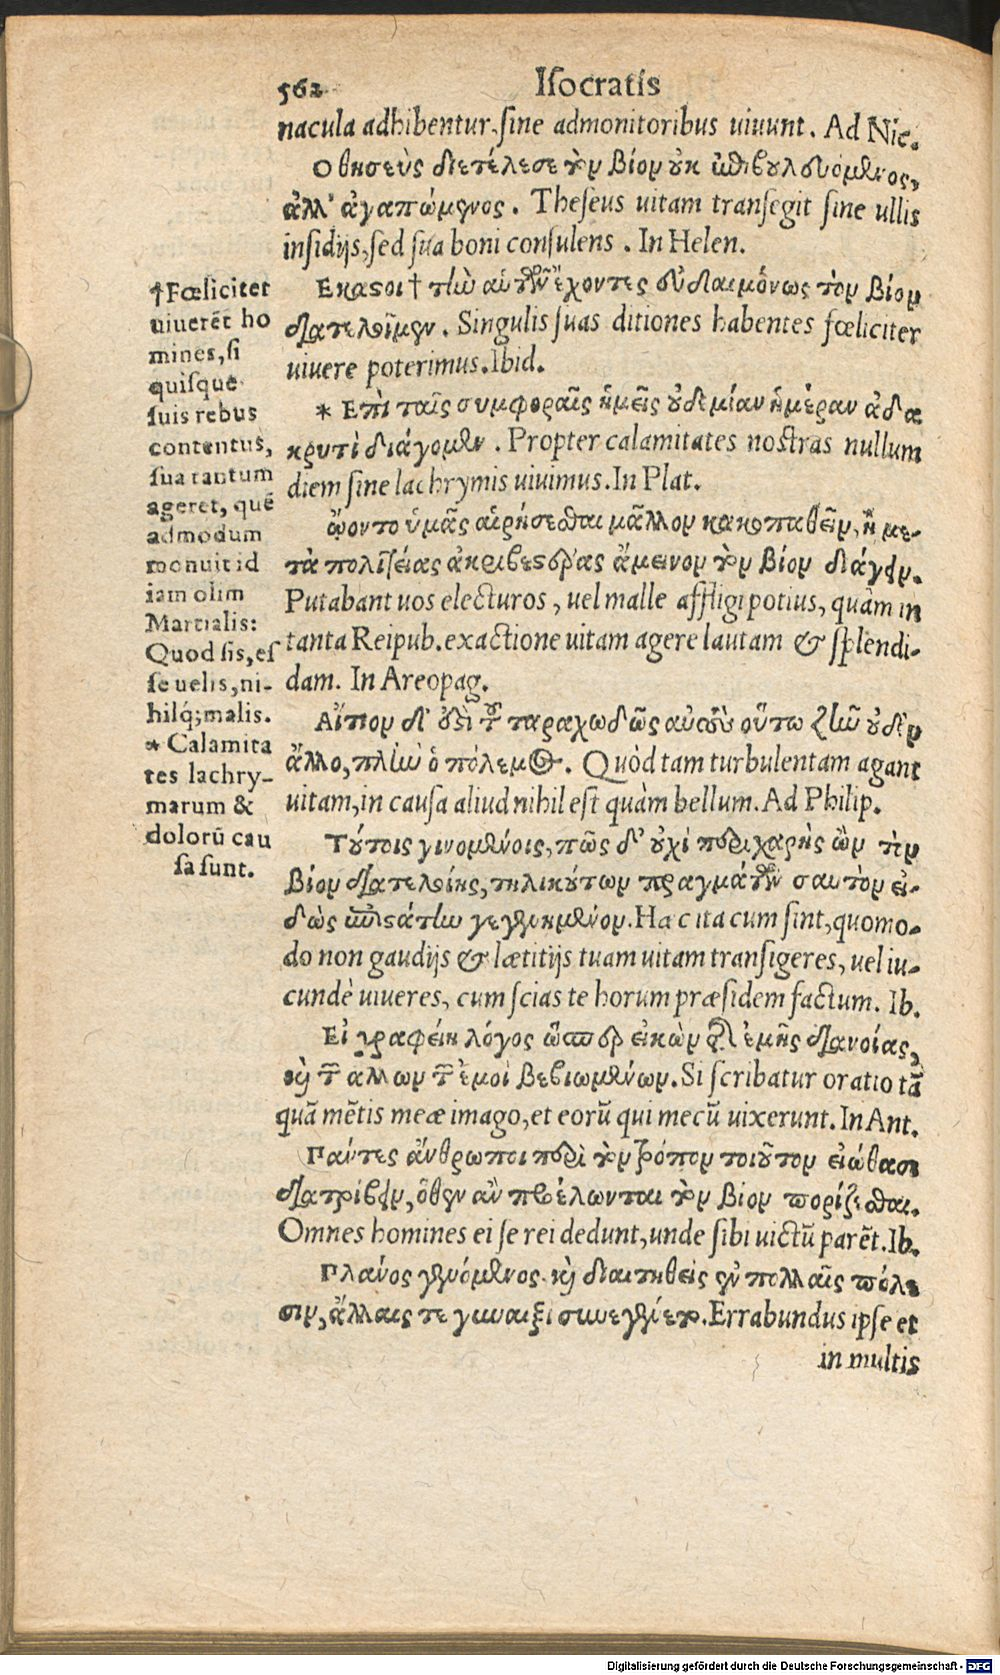 562 Isocratis
nacula adhibentur, sine admonitoribus uiuunt. Ad Nic.
Ο θησεὺς διετέλεσε τὸν βίον οὐκ ἐπιβουλευόμενος,
ἀλλ' ἀγαπώμενος. Theseus uitam transegit sine ullis
insidijs, sed sua boni consulens. In Helen.
Εκαστοι † τὴν αὑτῶν ἔχοντες εὐδαιμόνως τὸν βίον
διατελοῖμεν. Singulis suas ditiones habentes fœliciter
uiuere poterimus. Ibid.
* Επὶ ταῖς συμφοραῖς ἡμεῖς οὐδεμίαν ἡμέραν ἀδα
κρυτὶ διάγομεν. Propter calamitates nostras nullum
diem sine lachrymis uiuimus. In Plat.
ᾤοντο ὑμᾶς αἱρήσεσθαι μᾶλλον κακοπαθεῖν, ἢ με-
τὰ πολιτείας ἀκριβεστέρας ἄμεινον τὸν βίον διάγειν.
Putabant uos electuros, uel malle affligi potius, quàm in
tanta Reipub. exactione uitam agere lautam & splendi-
dam. In Areopag.
Αἴτιον δ' οὐδὲν τοῦ ταραχωδῶς αὐτοὺς οὕτω ζῆν οὐδὲν
ἄλλο, πλὴν ὁ πόλεμος. Quòd tam turbulentam agant
uitam, in causa aliud nihil est quàm bellum. Ad Philip.
Τούτοις γινομένοις, πῶς δ' οὐχὶ περιχαρὴς ὢν τὸν
βίον διατελοίης, τηλικούτων πραγμάτων σαυτὸν εἰ-
δὼς ἐπιστάτην γεγενημένον. Hac ita cum sint, quomo-
do non gaudijs & lætitijs tuam uitam transigeres, uel iu-
cundè uiueres, cum scias te horum præsidem factum. Ib.
Εἰ γραφείη λόγος ὥσπερ εἰκὼν τῆς ἐμῆς διανοίας,
καὶ τῶν ἄλλων τῶν ἐμοὶ βεβιωμένων. Si scribatur oratio tã
quã mẽtis meæ imago, et eorũ qui mecũ uixerunt. In Ant.
Πάντες ἄνθρωποι περὶ τὸν τρόπον τοιοῦτον εἰώθασι
διατρίβειν, ὅθεν ἂν προέλωνται τὸν βίον πορίζεσθαι.
Omnes homines ei se rei dedunt, unde sibi uictũ parẽt. Ib.
Πλάνος γενόμενος καὶ διαιτηθεὶς ἐν πολλαῖς πόλε
σιν, ἄλλαις τε γυναιξὶ συνεγένετο. Errabundus ipse et
in multis
†Fœliciter
uiuerẽt ho
mines, si
quisque
suis rebus
contentus,
sua tantum
ageret, quẽ
admodum
monuit id
iam olim
Martialis:
Quod sis, es
se uelis, ni-
hilq́; malis.
* Calamita
tes lachry-
marum &
dolorũ cau
sa sunt.
Digitalisierung gefördert durch die Deutsche Forschungsgemeinschaft - DFG